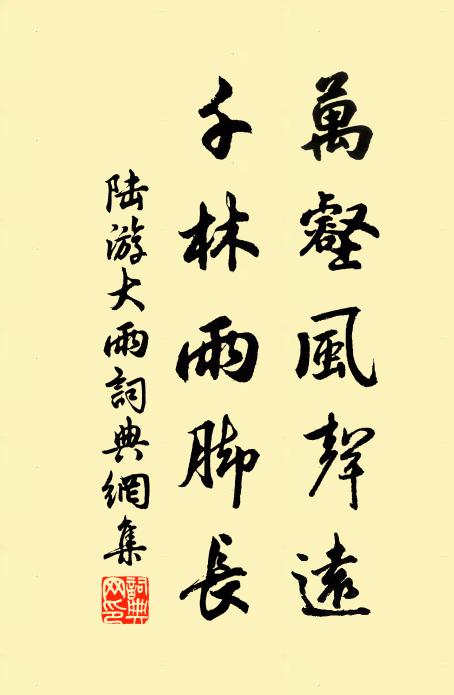 萬壑風聲遠
千林雨脚長
陸游大雨詞典網集
詞典網印